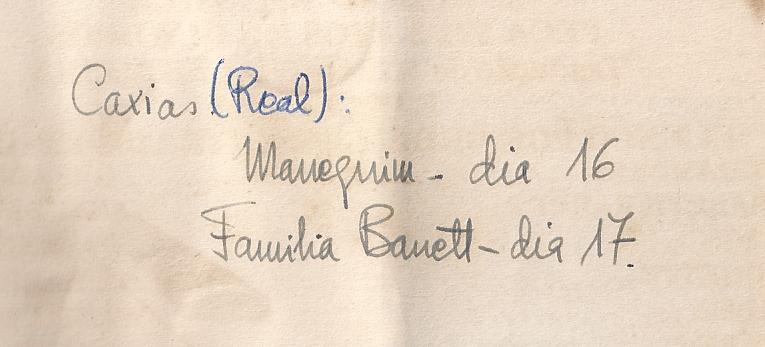 Caxias (Real):
Manequim - dia 16
Familia Banett - dia 17.